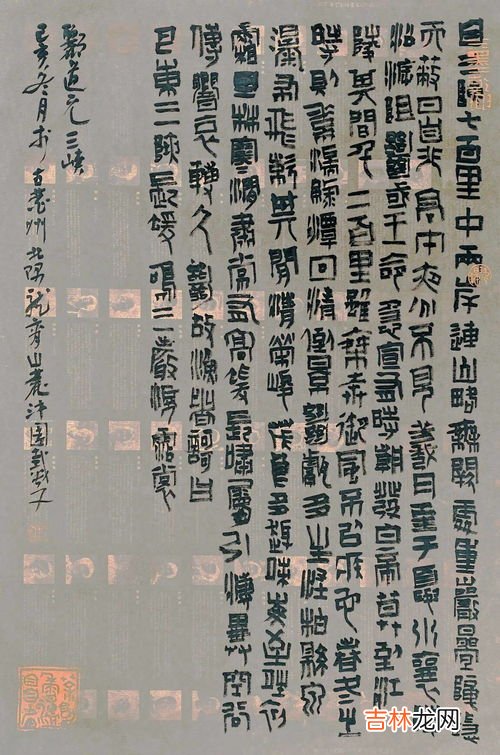 自三陝七百里中兩岸連山略無闕處重巖疊嶂隱
天蔽日自非亭午夜分不見羲月至于夏水襄陵
沿溯阻絕或王命急宣有時朝發白帝暮到江
陵其間千二百里雖乘奔御風不以疾也春冬之
時則素湍綠潭回清倒景絕巘多生怪柏懸泉
瀑布飛漱其間清榮峻茂良多趣味每至晴初
霜旦林寒澗肅常有高猨長嘯屬引淒異空谷
傳響哀轉久絕故漁者歌曰
巴東三陝長猨鳴三聲淚霑裳
酈道元三峽
己亥冬月於古惠州北隅龍脊山麓沐園
吉林龙网